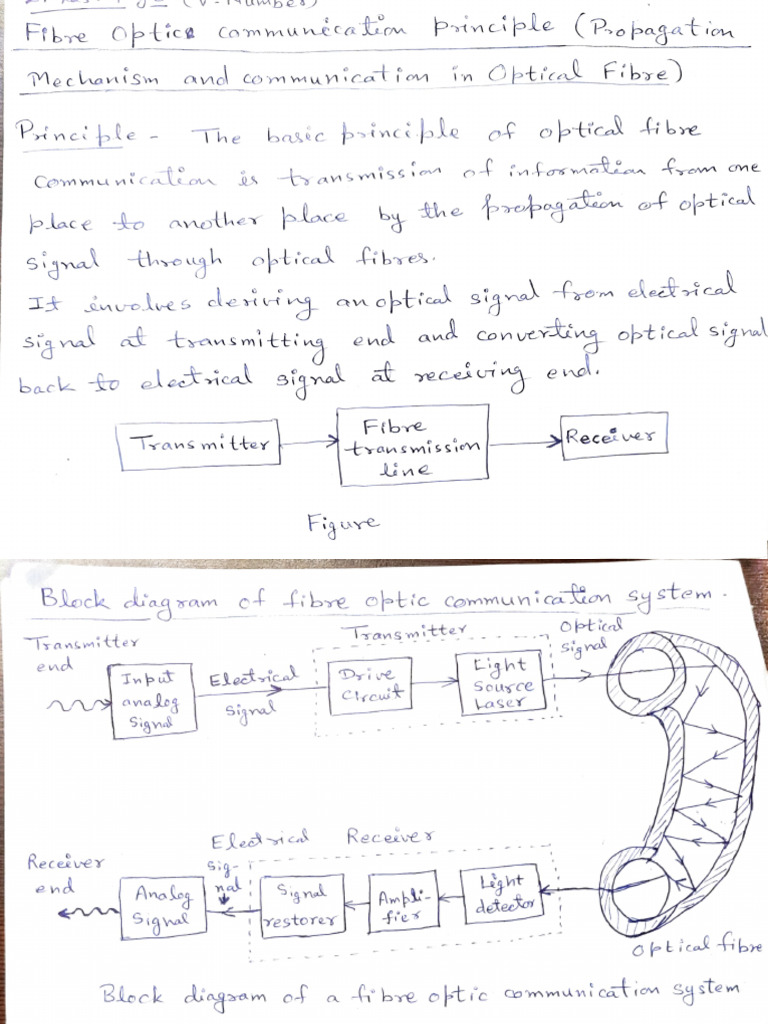 (V-Number)
Fibre Optics communication principle (Propagation
Mechanism and communication in Optical Fibre)
Principle - The basic principle of optical fibre
communication is transmission of information from one
place to another place by the propagation of optical
signal through optical fibres.
It involves deriving an optical signal from electrical
signal at transmitting end and converting optical signal
back to electrical signal at receiving end.
Transmitter
Fibre
transmission
line
Receiver
Figure
Block diagram of fibre optic communication system.
Transmitter
end
Input
analog
Signal
Electrical
Signal
Transmitter
Drive
Circuit
Light
Source
Laser
Optical
Signal
Receiver
end
Analog
Signal
Electrical
Sig-
nal
Receiver
Signal
restorer
Ampli-
fier
Light
detector
Optical fibre
Block diagram of a fibre optic communication system